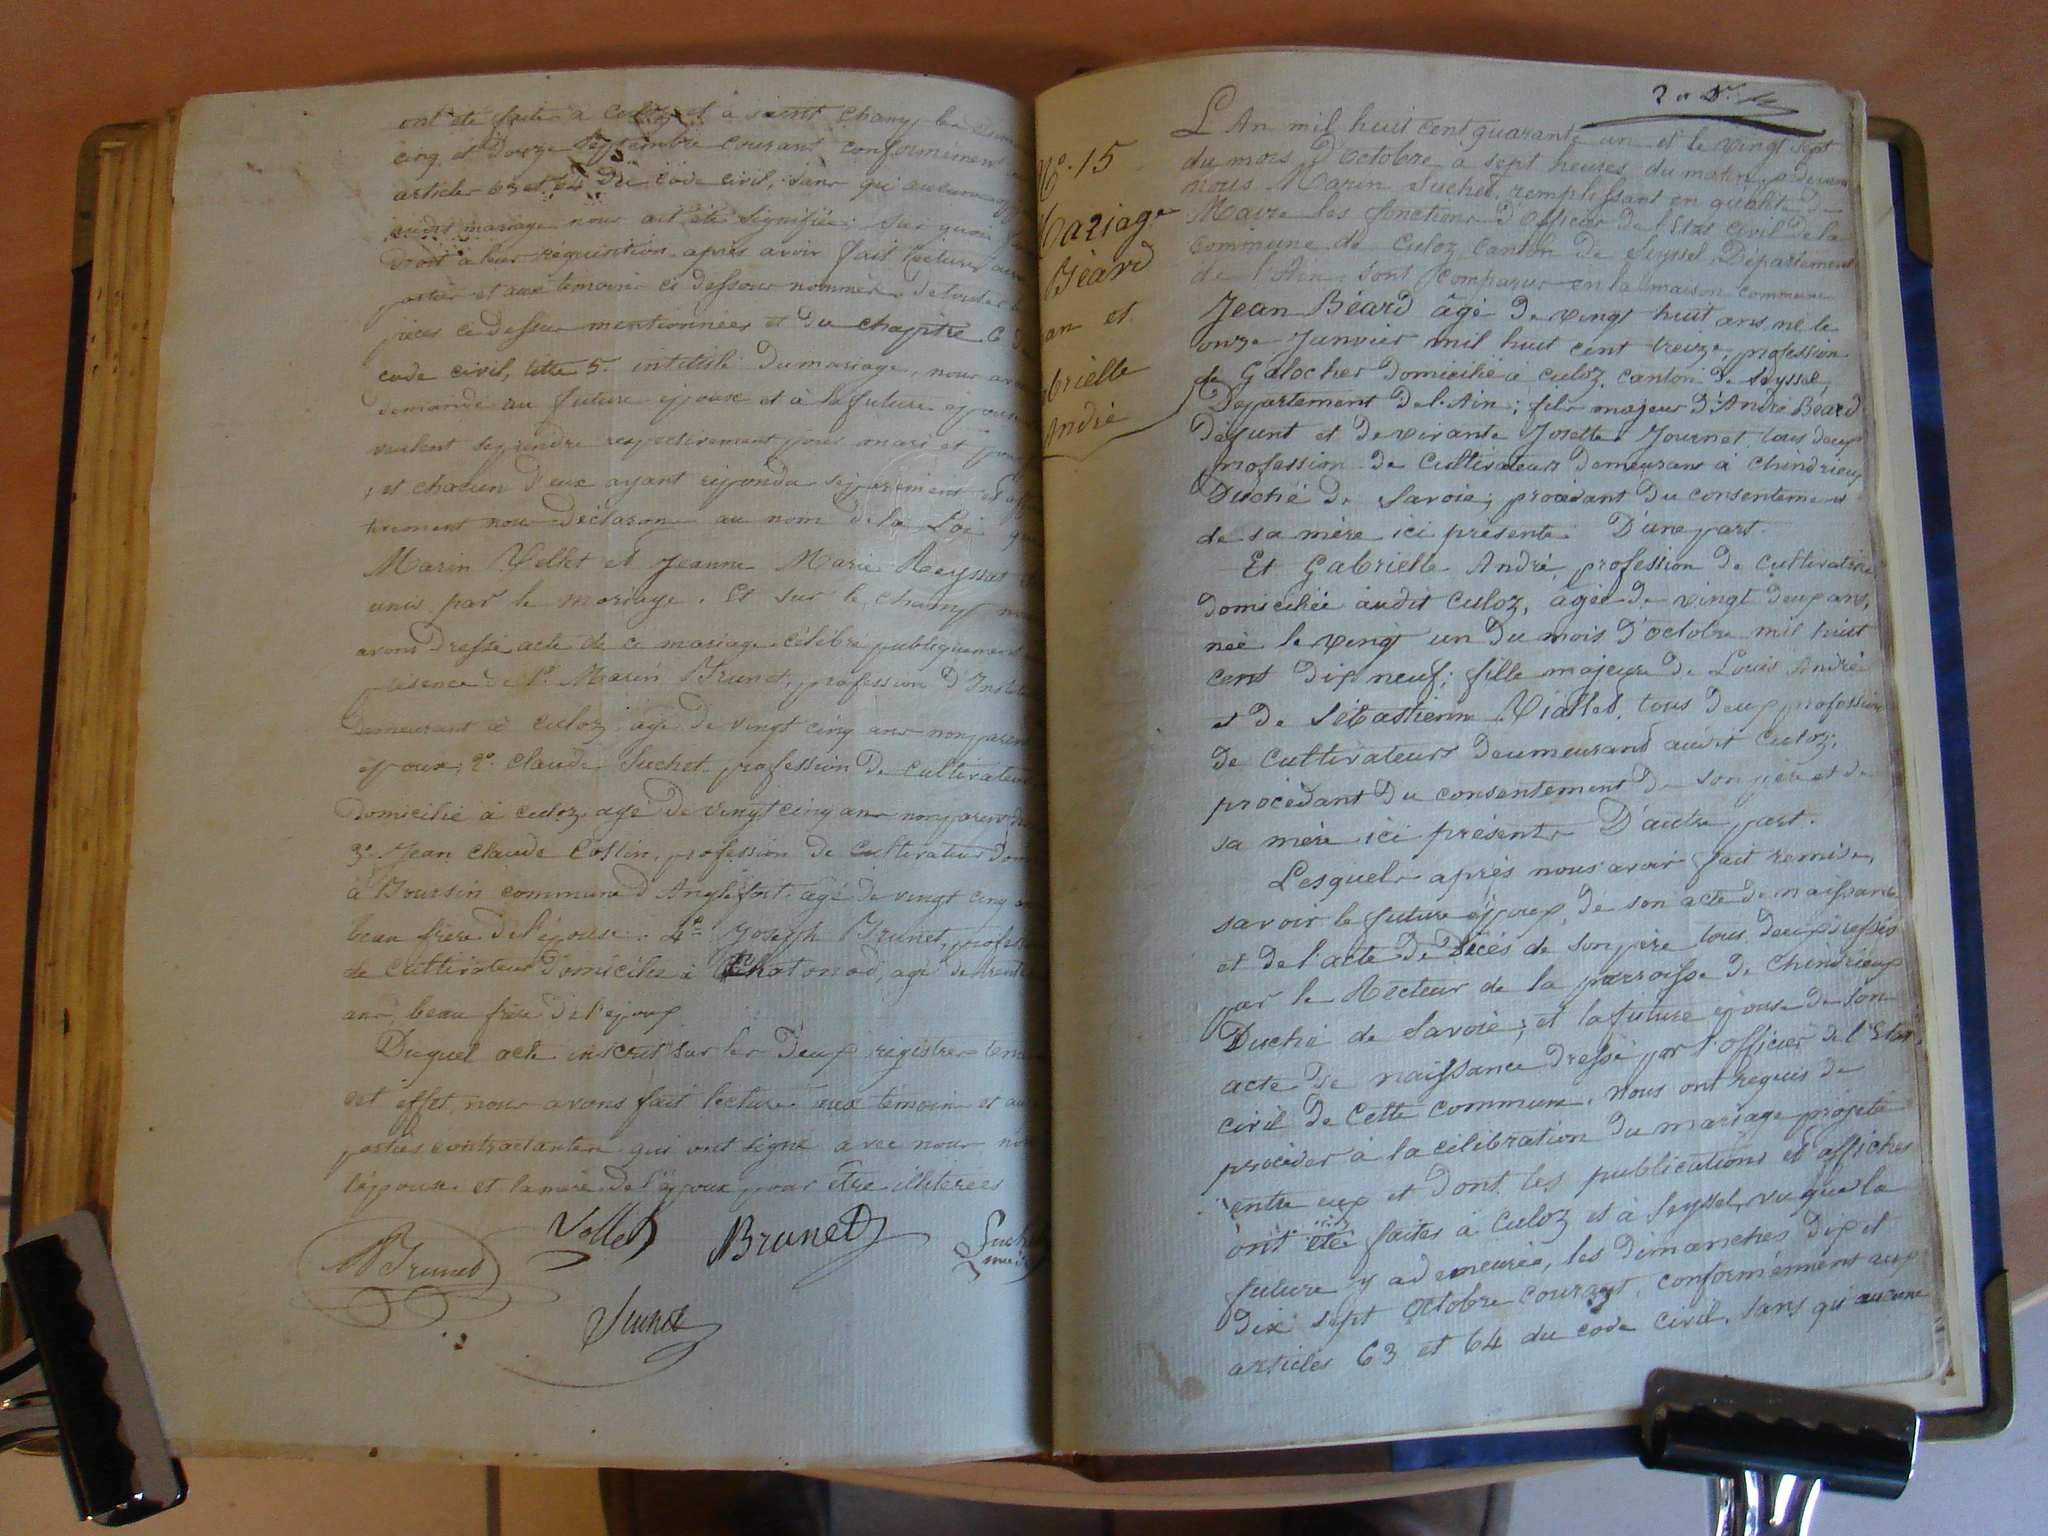 ont été faites à Culoz et à saint Champ les
cinq et douze Septembre courant conformément
articles 63 et 64 du code civil, sans qui aucune
audit mariage nous ait été signifiée. Sur quoi
droit à leur réquisition après avoir fait lecture aux
parties et aux témoins ci dessous nommés de toutes
pièces ci dessus mentionnées et du chapitre 6
code civil, titre 5. intitulé du mariage, nous avons
demandé au future époux et à la future épouse
veulent se prendre respectivement pour mari et pour
, et chacun d'eux ayant répondu séparément et
tivement nous déclarons au nom de la Loi que
Marin Vollet et Jeanne Marie Reyssat
unis par le mariage. Et sur le champ nous
avons dressé acte de ce mariage célébré publiquement
présence de 1º Marin Brunet, profession d'
demeurant à Culoz âgé de vingt cinq ans non parent
époux, 2º. Claude Suchet profession de cultivateur
domicilié à culoz âgé de vingt cinq ans non parent
3º Jean Claude Costin, profession de cultivateur
à Boursin commune d'Anglefort âgé de vingt cinq
beau frère de l'épouse. 4º Joseph Brunet,
de cultivateur domicilié à Chatonod, âgé de trente
ans, beau frère de l'époux
Duquel acte inscrit sur les deux registres
cet effet, nous avons fait lecture aux témoins et aux
parties contractantes qui ont signé avec nous
l'épouse et la mère de l'époux pour être illitérées
Brunet Vollet Brunet Suchet
Brunet
N.º 15
Mariage
Béard
Jean et
Gabrielle
André
L'An mil huit cent quarante un et le vingt sept
du mois d'octobre à sept heures du matin, pardevant
nous Marin Suchet, remplissant en qualité de
Maire les fonctions d'Officier de l'Etat Civil de la
commune de Culoz, canton de Seyssel, Département
de l'Ain, sont comparus en la maison commune
Jean Béard âgé de vingt huit ans, né le
onze Janvier mil huit cent treize, profession
de Galocher domicilié à culoz, canton de Seyssel,
Département de l'Ain; fils majeur d'André Béard
défunt et de vivante Josette Journet tous deux
profession de cultivateurs demeurans à Chindrieux
Duché de Savoie; procédant du consentement
de sa mère ici présente D'une part.
Et Gabrielle André, profession de cultivatrice
domiciliée audit Culoz, âgée de vingt deux ans,
née le vingt un du mois d'octobre mil huit
cent dix neuf; fille majeure de Louis André
et de Sébastienne Viallet, tous deux profession
de cultivateurs deumeurand audit Culoz;
procédant du consentement de son père et de
sa mère ici présents D'autre part.
Lesquels après nous avoir fait remise,
savoir le future époux, de son acte de naissance
et de l'acte de Décès de son père tous deux dressés
par le Recteur de la parroisse de Chindrieux
Duché de Savoie; et la future épouse de son
acte de naissance dressé par l'officier de l'Etat
civil de cette commune. nous ont requis de
procéder à la célébration du mariage projeté
entre eux et dont les publications et affiches
ont été faites à Culoz et à Seyssel, vu que la
future y a demeurée, les dimanches dix et
dix sept octobre courant, conformément aux
articles 63 et 64 du code civil. sans qu'aucune